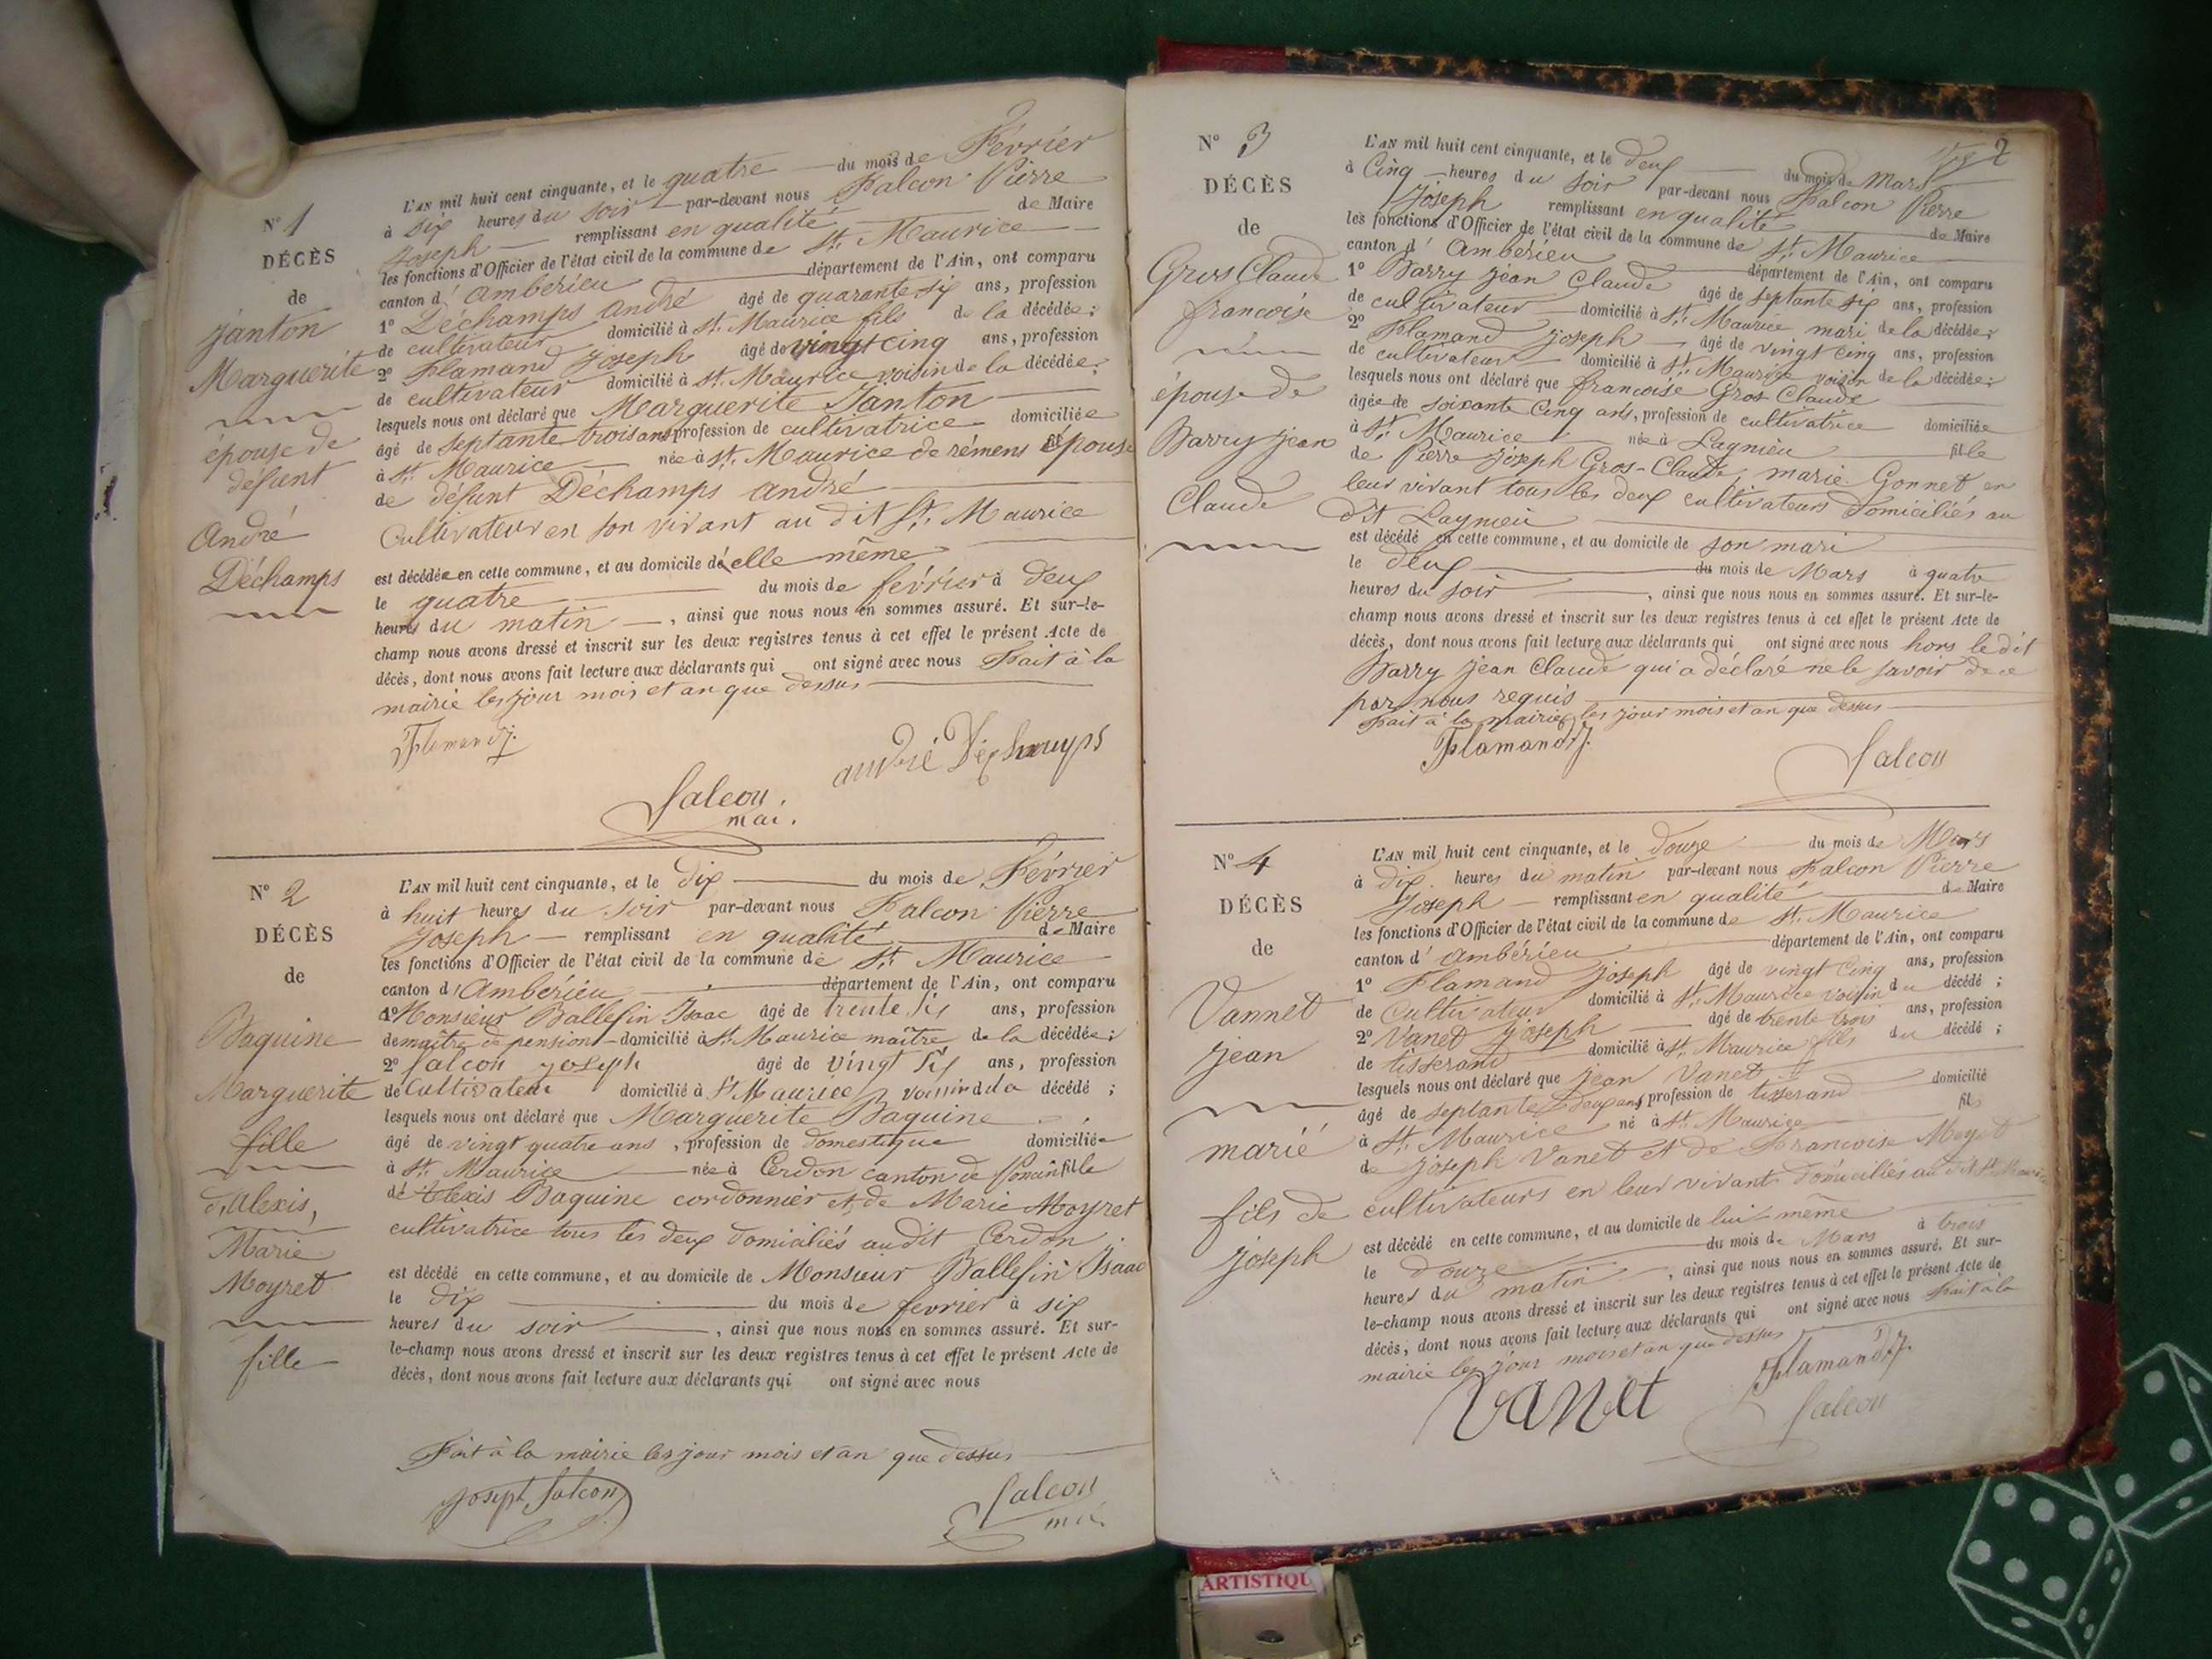 N° 1
DÉCÈS
de
Janton
Marguerite
épouse de
défunt
André
Déchamps
L'AN mil huit cent cinquante, et le quatre du mois de Février
à six heures du soir par-devant nous Falcon Pierre
Joseph remplissant en qualité de Maire
les fonctions d'Officier de l'état civil de la commune de St. Maurice
canton d' Ambérieu département de l'Ain, ont comparu
1° Déchamps André âgé de quarante six ans, profession
de cultivateur domicilié à St. Maurice fils de la décédée;
2° Flamand Joseph âgé de vingt cinq ans, profession
de cultivateur domicilié à St. Maurice voisin de la décédée;
lesquels nous ont déclaré que Marguerite Janton
âgé de septante trois ans profession de cultivatrice domiciliée
à St. Maurice née à St. Maurice de rémens épouse
de défunt Déchamps André
Cultivateur en son vivant au dit St. Maurice
est décédée en cette commune, et au domicile d'elle même
le quatre du mois de février à deux
heures du matin, ainsi que nous nous en sommes assuré. Et sur-le-
champ nous avons dressé et inscrit sur les deux registres tenus à cet effet le présent Acte de
décès, dont nous avons fait lecture aux déclarants qui ont signé avec nous Fait à la
mairie les jour mois et an que dessus
Flamand J.
andré Déchamps
falcon.
mai.
N° 2
DÉCÈS
de
Baguine
Marguerite
fille
d'Alexis,
Marie
Moyret
fille
L'AN mil huit cent cinquante, et le dix du mois de Février
à huit heures du soir par-devant nous Falcon Pierre
Joseph remplissant en qualité de Maire
les fonctions d'Officier de l'état civil de la commune de St. Maurice
canton d'Ambérieu département de l'Ain, ont comparu
1° Monsieur Ballefin Isaac âgé de trente six ans, profession
de maître de pension domicilié à St. Maurice maître de la décédée;
2° falcon joseph âgé de vingt six ans, profession
de Cultivateur domicilié à St Maurice voisin de la décédé;
lesquels nous ont déclaré que Marguerite Baguine
âgé de vingt quatre ans, profession de domestique domiciliée
à St. Maurice née à Cerdon canton de Poncin fille
de Alexis Baguine cordonnier et de Marie Moyret
cultivatrice tous les deux domiciliés audit Cerdon
est décédé en cette commune, et au domicile de Monsieur Ballefin Isaac
le dix du mois de fevrier à six
heures du soir, ainsi que nous nous en sommes assuré. Et sur-
le-champ nous avons dressé et inscrit sur les deux registres tenus à cet effet le présent Acte de
décès, dont nous avons fait lecture aux déclarants qui ont signé avec nous
Fait à la mairie les jour mois et an que dessus
joseph falcon
falcon
2
N° 3
DÉCÈS
de
Gros Claude
francoise
épouse de
Barry jean
Claude
L'AN mil huit cent cinquante, et le deux du mois de Mars
à Cinq heures du soir par-devant nous Falcon Pierre
Joseph remplissant en qualité de Maire
les fonctions d'Officier de l'état civil de la commune de St. Maurice
canton d' Ambérieu département de l'Ain, ont comparu
1° Barry jean Claude âgé de septante six ans, profession
de cultivateur domicilié à St. Maurice mari de la décédée;
2° Flamand Joseph âgé de vingt cinq ans, profession
de cultivateur domicilié à St. Maurice voisin de la décédée;
lesquels nous ont déclaré que francoise Gros Claude
âgée de soixante Cinq ans, profession de cultivatrice domiciliée
à St. Maurice née à Lagnieu fille
de Pierre Joseph Gros-Claude, marie Gonnet en
leur vivant tous les deux cultivateurs Domiciliés au
dit Lagnieu
est décédé en cette commune, et au domicile de son mari
le deux du mois de Mars à quatre
heures du soir, ainsi que nous nous en sommes assuré. Et sur-le-
champ nous avons dressé et inscrit sur les deux registres tenus à cet effet le présent Acte de
décès, dont nous avons fait lecture aux déclarants qui ont signé avec nous hors le dit
Barry jean Claude qui a déclaré ne le savoir de ce
par nous requis
Fait à la mairie les jour mois et an que dessus
Flamand J.
falcon
N° 4
DÉCÈS
de
Vannet
jean
marié
fils de
joseph
L'AN mil huit cent cinquante, et le douze du mois de Mars
à dix heures du matin par-devant nous Falcon Pierre
Joseph remplissant en qualité de Maire
les fonctions d'Officier de l'état civil de la commune de St. Maurice
canton d' Ambérieu département de l'Ain, ont comparu
1° Flamand Joseph âgé de vingt Cinq ans, profession
de Cultivateur domicilié à St. Maurice voisin du décédé;
2° Vanet Joseph âgé de trente trois ans, profession
de tisserand domicilié à St. Maurice fils du décédé;
lesquels nous ont déclaré que jean Vanet
âgé de septante deux ans profession de tisserand domicilié
à St. Maurice né à St. Maurice fils
de joseph Vanet et de Francoise Meyet
cultivateurs en leur vivant domiciliés au dit St. Maurice
est décédé en cette commune, et au domicile de lui-même
le douze du mois de Mars à trois
heures du matin, ainsi que nous nous en sommes assuré. Et sur-
le-champ nous avons dressé et inscrit sur les deux registres tenus à cet effet le présent Acte de
décès, dont nous avons fait lecture aux déclarants qui ont signé avec nous Fait à la
mairie les jour mois et an que dessus
Vanet
Flamand J.
falcon
ARTISTIQU